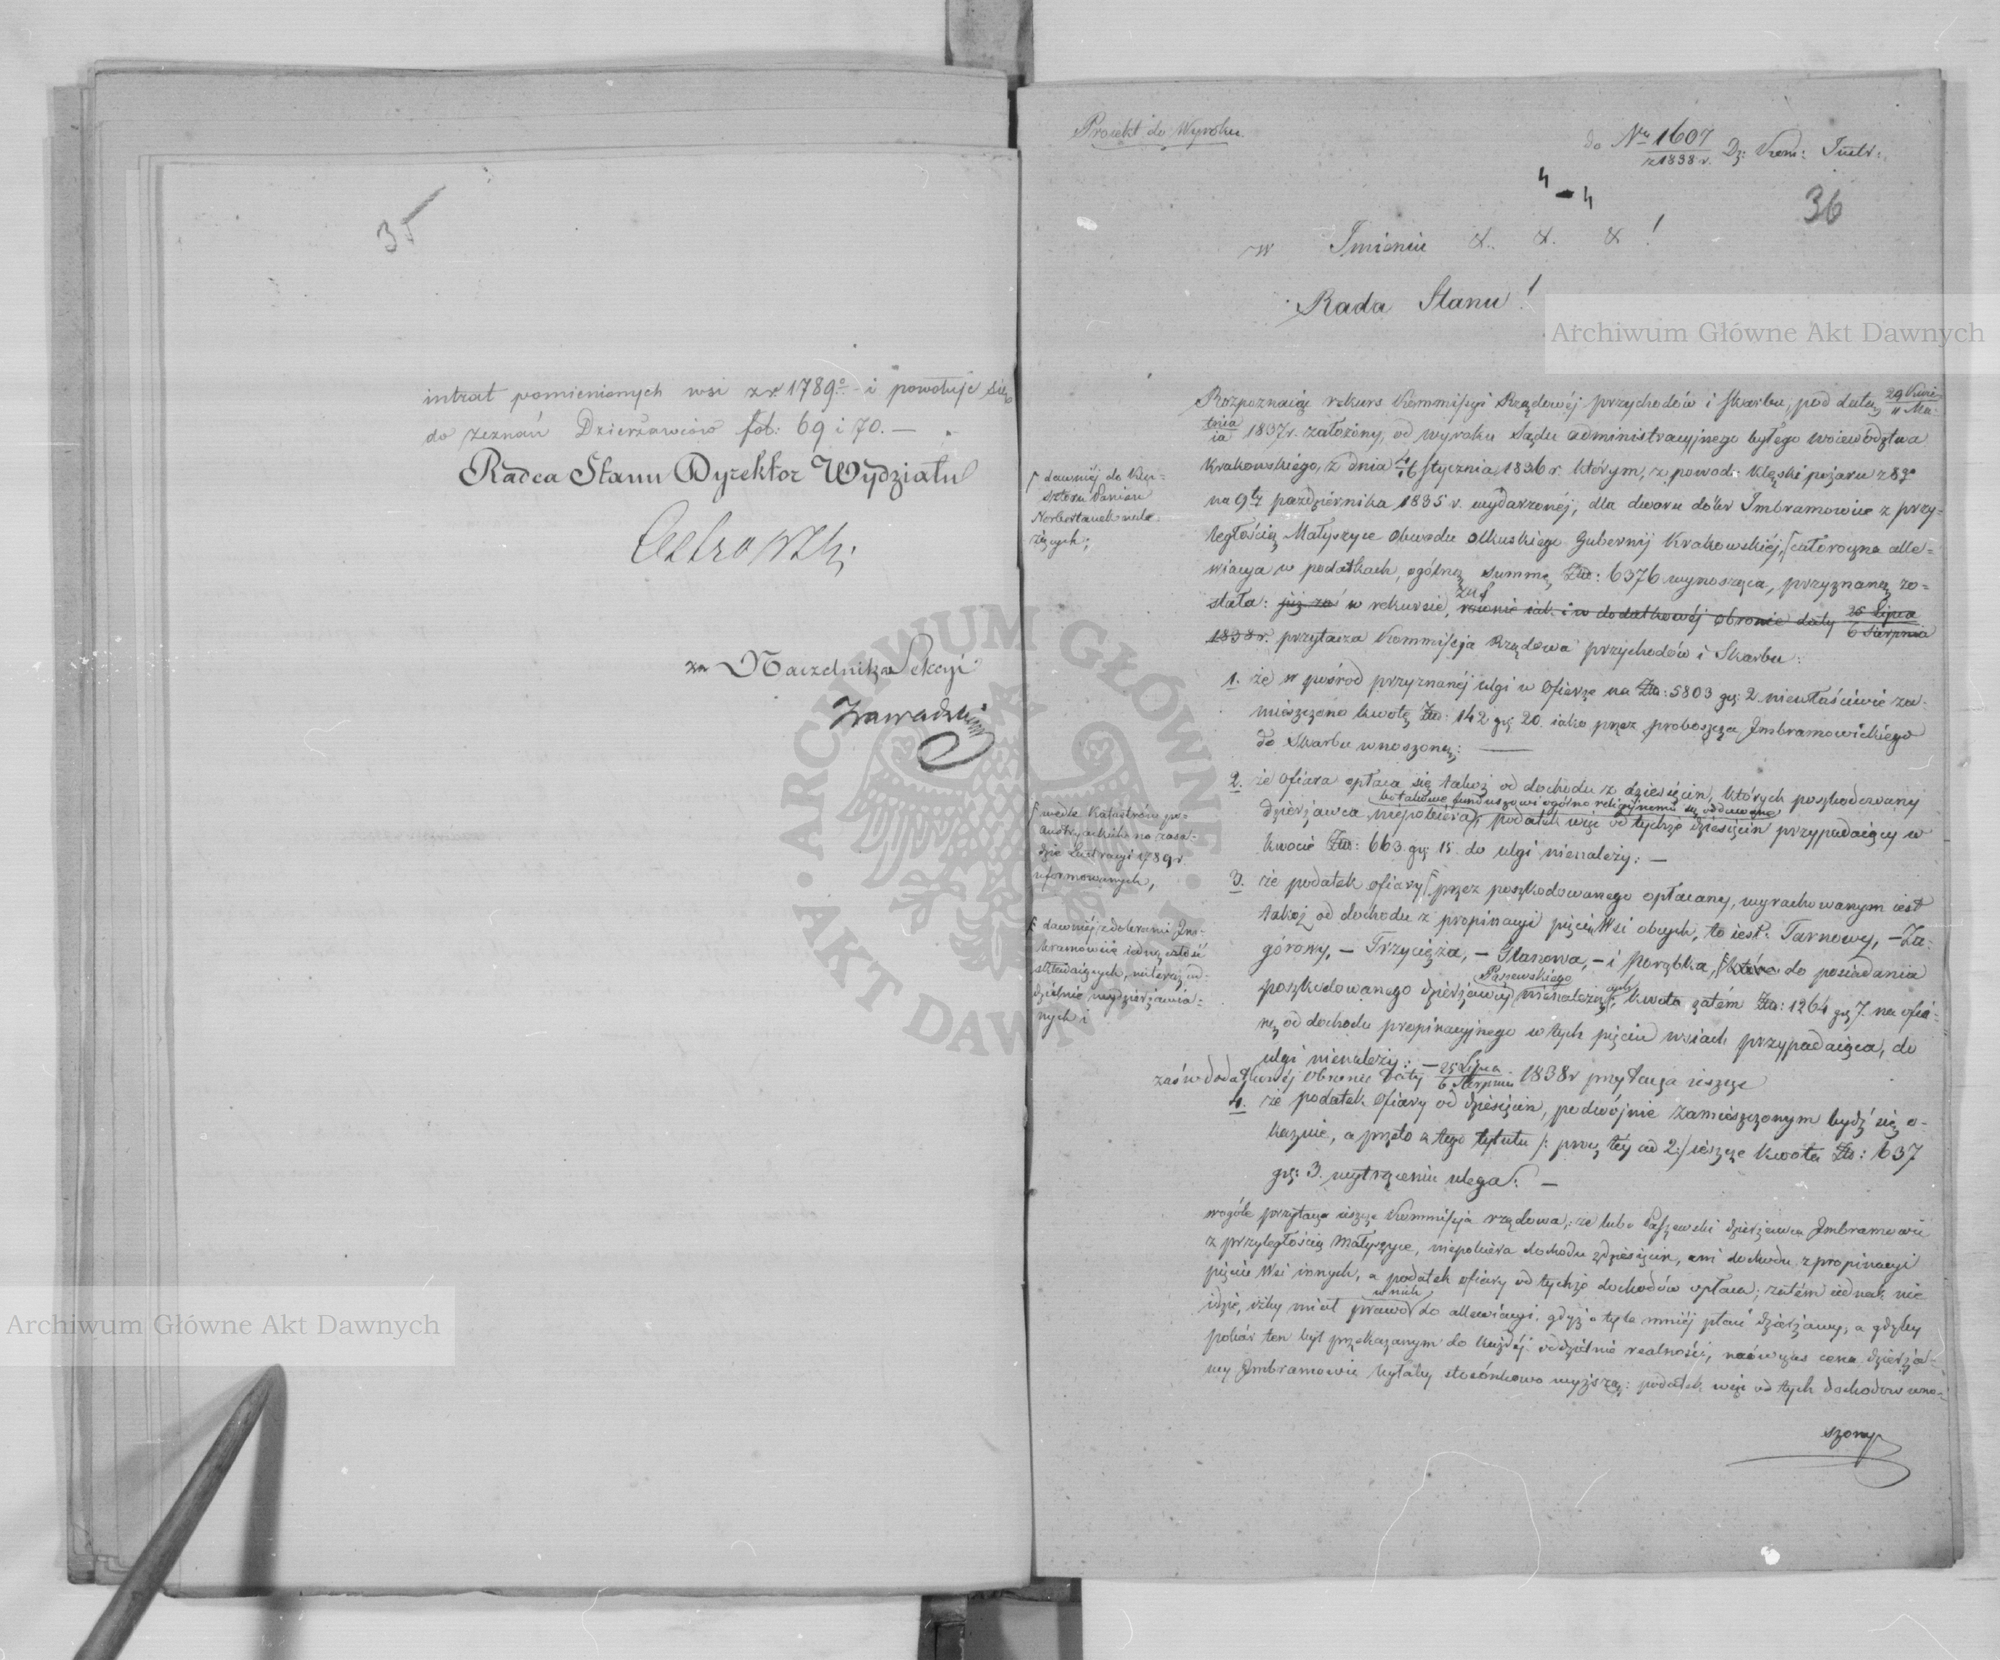 35
intrat pomienionych wsi z r. 1789º i powołuje się
do zeznań Dzierżawców fol: 69 i 70. —
Radca Stanu Dyrektor Wydziału
za Naczelnika Sekcyi
Zawadzki
Proiekt do Wyroku
do Nru 1607
z 1838 r. Dz: Kom: Instr:
36
w Imieniu &. &. & !
Rada Stanu!
Rozpoznaiąc rekurs Kommissyi Rządowéj przychodów i skarbu, pod datą 29 Kwie-
tnia
11 Ma-
ia 1837 r. założony, od wyroku Sądu administracyjnego byłego woiewództwa
Krakowskiego, z dnia 4/16 stycznia 1836 r. którym, z powodu klęski pożaru z 8go
na 9ty października 1835 r. wydarzonéj, dla dworu dóbr Imbramowic z przy-
ległością Małyszyce Obwodu Olkuskiego Gubernij Krakowskiéj, [całoroczna alle-
wiacya w podatkach, ogólną summę Złp: 6376 wynosząca, przyznaną zo-
stała: już za w rekursie, zaś równie iak i w dodatkowéj obronie daty 25 Lipca
6 Sierpnia
1838 r. przytacza Kommissya Rządowa przychodów i Skarbu:
[dawniéj do Kla-
sztoru Panien
Norbertanek nale-
żących;
1. że w pośród przyznanéj ulgi w Ofierze na Złp: 5803 gr: 2 niewłaściwie za-
mieszczono kwotę Złp: 142 gr 20. iako przez proboszcza Imbramowickiego
do Skarbu wnoszoną: —
2. że ofiara opłaca się także od dochodu z dziesięcin, których poszkodowany
bo takowe funduszowi ogólno religijnemu są oddawane
dzierżawca niepobiera, podatek więc od tychże dziesięcin przypadaiący w
kwocie Złp: 663 gr 15. do ulgi nienależy: —
[wedle Katastrów po-
austryackich na zasa-
dzie Lustracyi 1789 r.
uformowanych,
3. że podatek ofiary [przez poszkodowanego opłacany, wyrachowanym iest
także od dochodu z propinacyi pięciu Wsi obcych, to iest: Tarnowy, — Za-
górowy, — Trzyciąża, — Glanowa, — i Porąbka, [które do posiadania
Paszewskiego
poszkodowanego dzierżawcy nienależą, kwota zatém Złp: 1264 gr 7. na ofia-
rę od dochodu propinacyjnego w tych pięciu wsiach przypadaiąca, do
ulgi nienależy: —
[dawniéj z dobrami Im-
bramowice iedną całość
składaiących, a teraz od-
dzielnie wydzierżawia-
nych i
zaś w dodatkowéj Obronie daty 25 Lipca
6 Sierpnia 1838 r przytacza ieszcze
4. że podatek Ofiary od dziesięcin, podwójnie zamieszczonym bydź się o-
kazuie, a przeto z tego tytułu /: prócz téy ad 2:/ ieszcze kwota Złp: 637
gr: 3. wytrąceniu ulega: —
wogóle przytacza ieszcze Kommissya rządowa, że lubo Paszewski dzierżawca Imbramowic
z przyległością Małyszyce, niepobiera dochodu z dziesięcin, ani dochodu z propinacyi
pięciu Wsi innych, a podatek ofiary od tychże dochodów opłaca; zatém iednak nie
idzie, iżby miał prawo do allewiacyi, gdyż o tyle mniéj płaci dzierżawy, a gdyby
pobór ten był przekazanym do każdéj oddzielnie realności, naówczas cena dzierża-
wy Imbramowic byłaby stosónkowo wyższą: podatek więc od tych dochodów wno-
szony
Archiwum Główne Akt Dawnych
Archiwum Główne Akt Dawnych
ARCHIWUM GŁÓWNE · AKT DAWNYCH ·